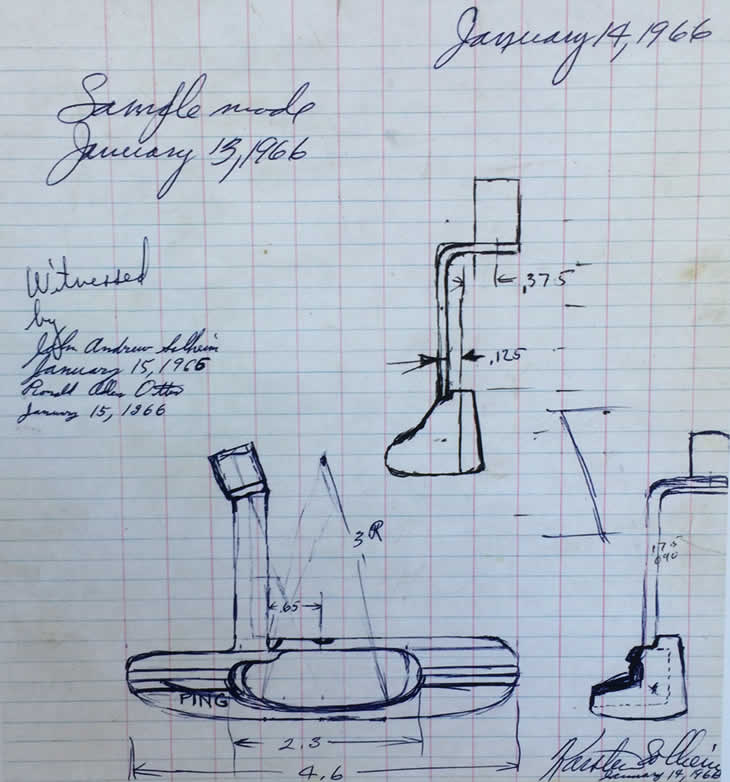 January 14, 1966
Sample mode
January 13, 1966
Witnessed
by
John Andrew Solheim
January 15, 1966
Ronald Otto
January 15, 1966
.375
.125
3R
.65
.175
.090
PING
2.3
4.6
Karsten Solheim
January 14, 1966